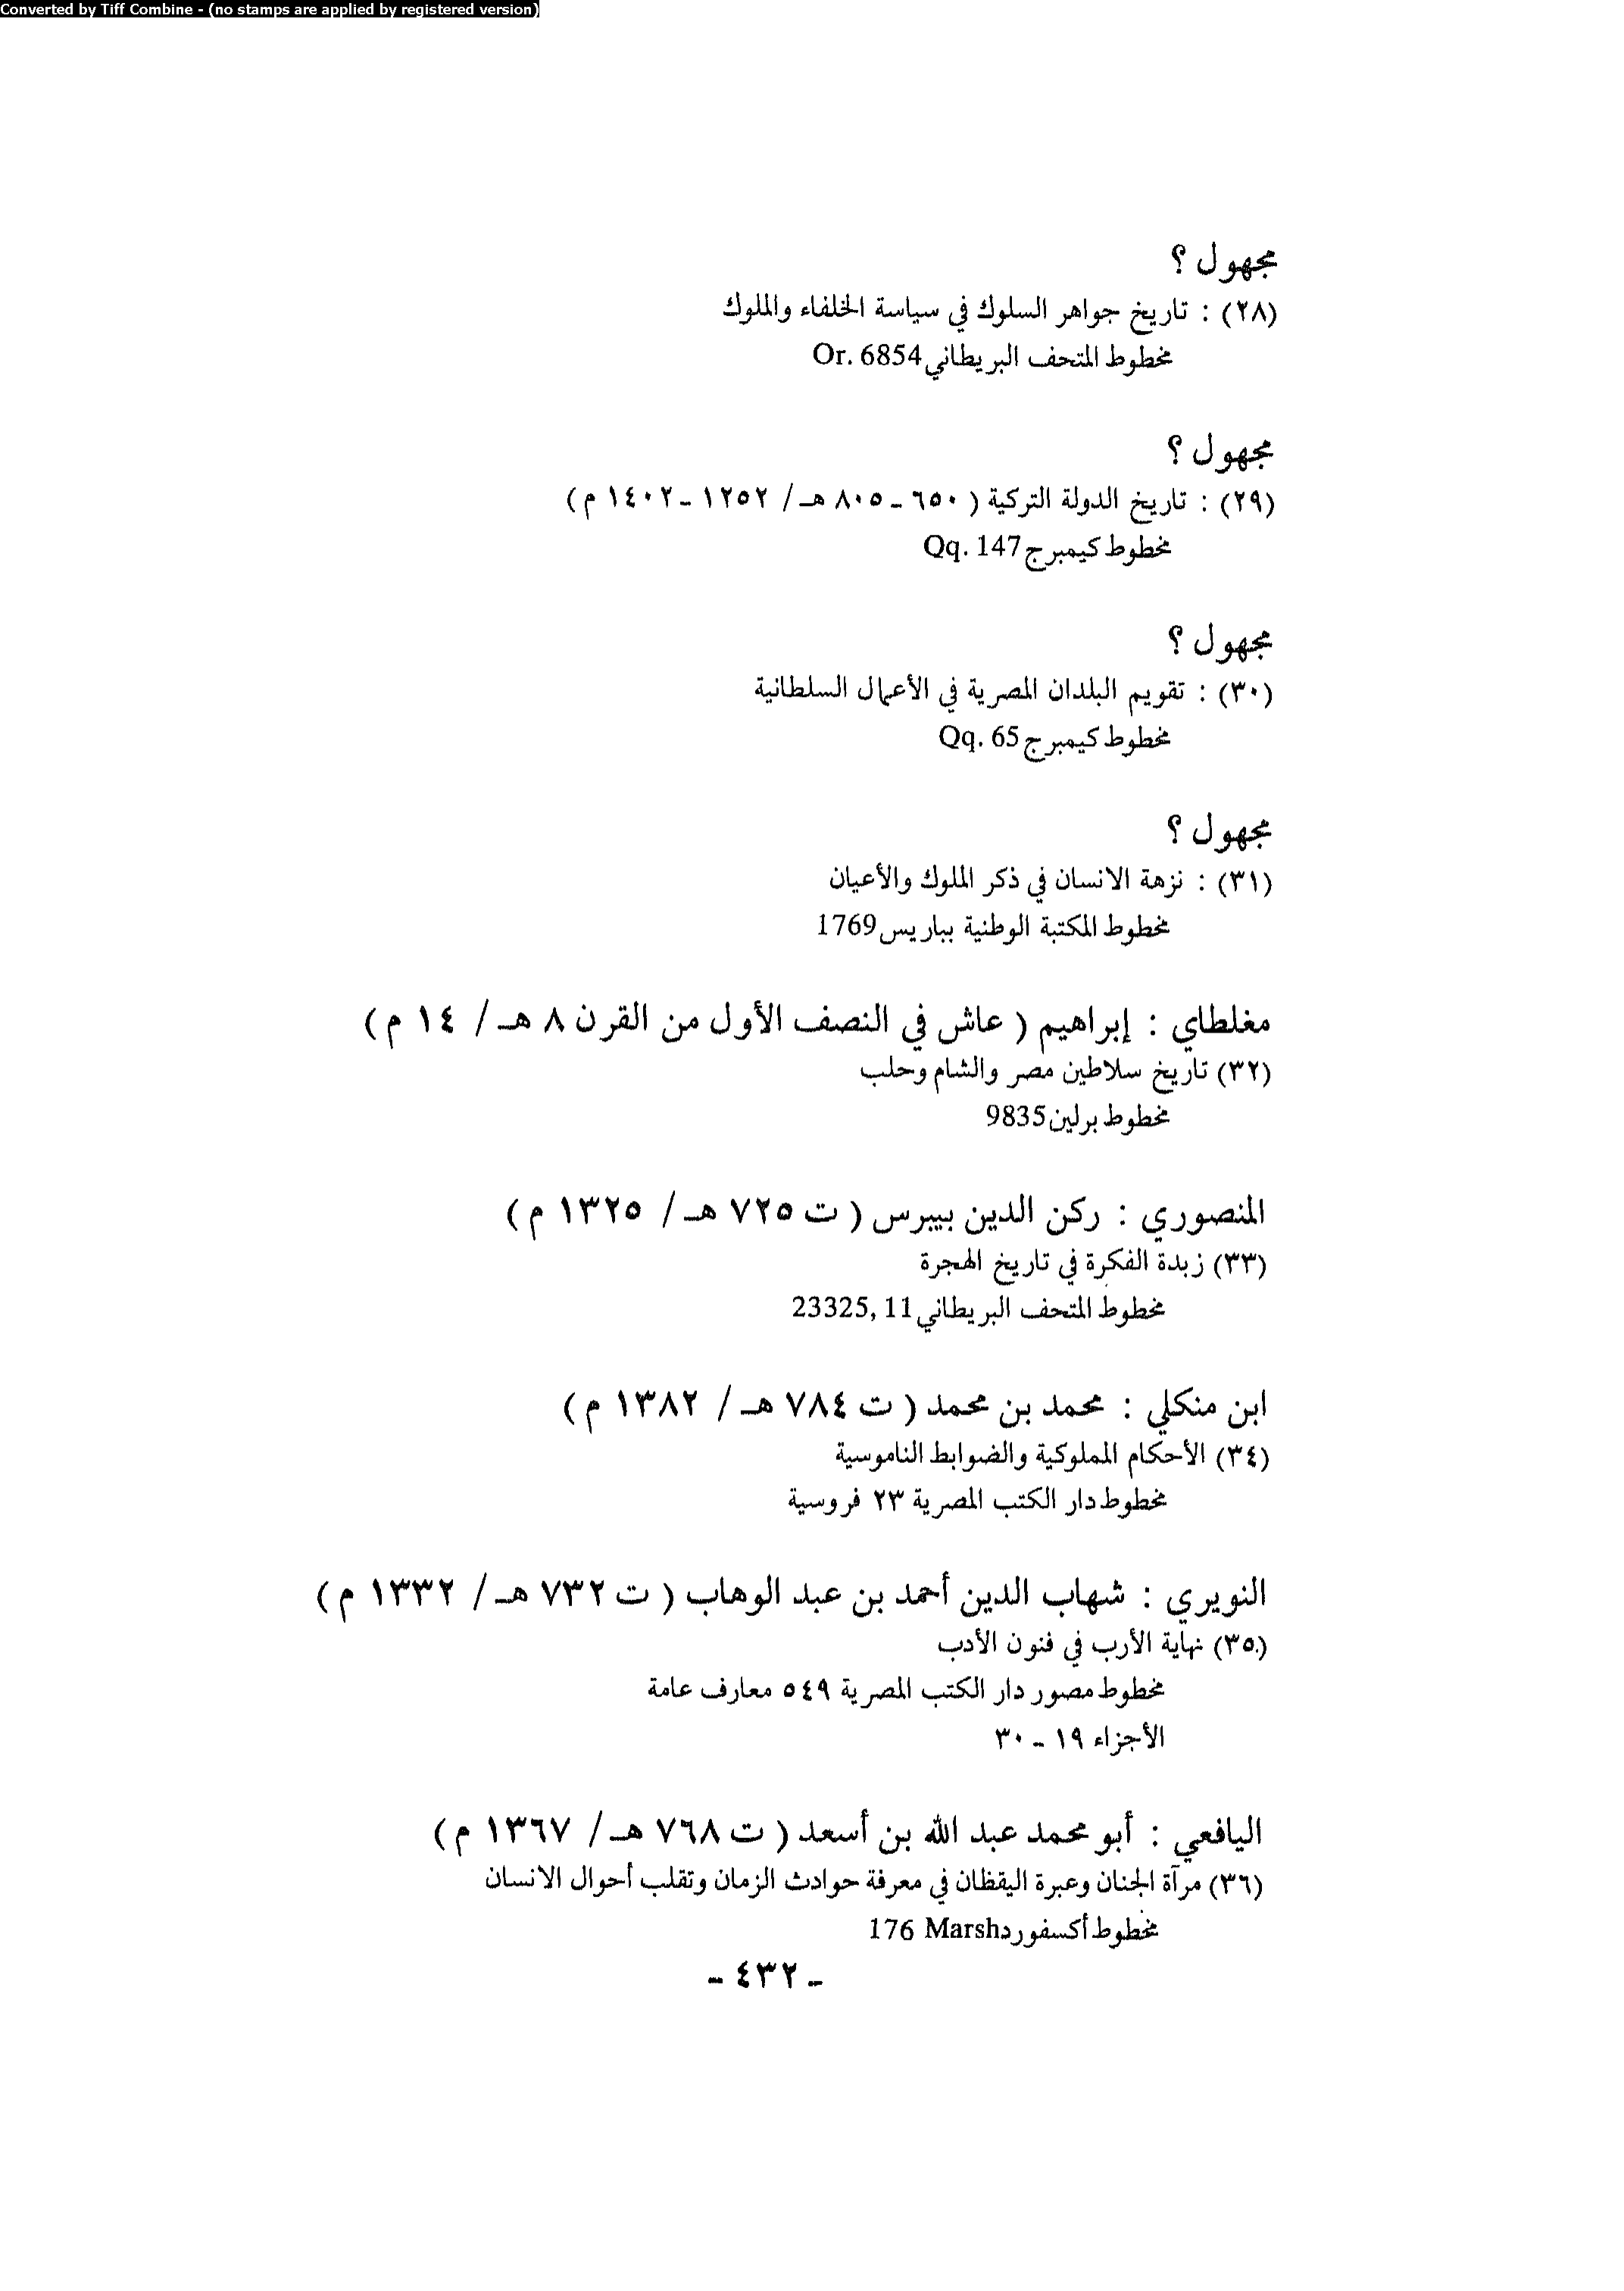 Converted by Tiff Combine - (no stamps are applied by registered version)
مجهول ؟
(٢٨) : تاريخ جواهر السلوك في سياسة الخلفاء والملوك
مخطوط المتحف البريطاني Or. 6854
مجهول ؟
(٢٩) : تاريخ الدولة التركية ( ٦٥٠ - ٨٠٥ هـ / ١٢٥٢ - ١٤٠٢ م )
مخطوط كيمبرج Qq. 147
مجهول ؟
(٣٠) : تقويم البلدان المصرية في الأعمال السلطانية
مخطوط كيمبرج Qq. 65
مجهول ؟
(٣١) : نزهة الانسان في ذكر الملوك والأعيان
مخطوط المكتبة الوطنية بباريس 1769
مغلطاي : إبراهيم ( عاش في النصف الأول من القرن ٨ هـ / ١٤ م )
(٣٢) تاريخ سلاطين مصر والشام وحلب
مخطوط برلين 9835
المنصوري : ركن الدين بيبرس ( ت ٧٢٥ هـ / ١٣٢٥ م )
(٣٣) زبدة الفكرة في تاريخ الهجرة
مخطوط المتحف البريطاني 23325, 11
ابن منكلي : محمد بن محمد ( ت ٧٨٤ هـ / ١٣٨٢ م )
(٣٤) الأحكام المملوكية والضوابط الناموسية
مخطوط دار الكتب المصرية ٢٣ فروسية
النويري : شهاب الدين أحمد بن عبد الوهاب ( ت ٧٣٢ هـ / ١٣٣٢ م )
(٣٥) نهاية الأرب في فنون الأدب
مخطوط مصور دار الكتب المصرية ٥٤٩ معارف عامة
الأجزاء ١٩ - ٣٠
اليافعي : أبو محمد عبد الله بن أسعد ( ت ٧٦٨ هـ / ١٣٦٧ م )
(٣٦) مرآة الجنان وعبرة اليقظان في معرفة حوادث الزمان وتقلب أحوال الانسان
مخطوط أكسفورد 176 Marsh
- ٤٣٢ -